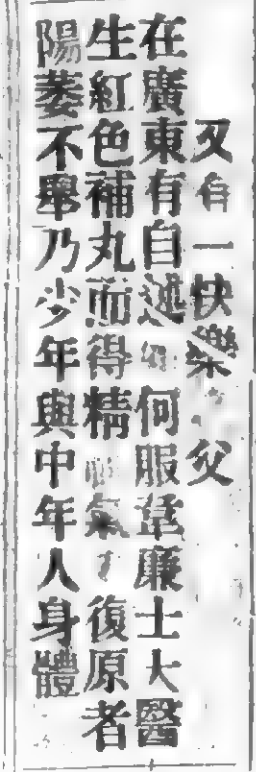 又有一快樂父
在廣東有自述何服韋廉士大醫
生紅色補丸而得精氣復原者
陽萎不舉乃少年與中年人身體